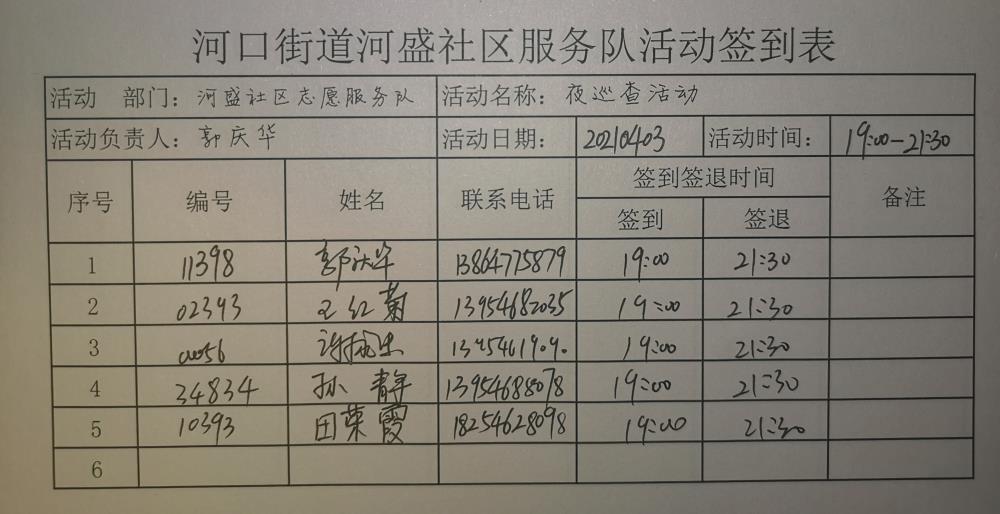 河口街道河盛社区服务队活动签到表
活动 部门：河盛社区志愿服务队 活动名称：夜巡查活动
活动负责人：郭庆华 活动日期： 20210403 活动时间： 19:00-21:30
序号 编号 姓名 联系电话 签到签退时间 备注
签到 签退
1 11398 郭庆华 13864775879 19:00 21:30
2 02393 王红菊 13954682035 19:00 21:30
3 19:00 21:30
4 34834 孙静 13954688078 19:00 21:30
5 10393 田荣霞 18254628098 19:00 21:30
6